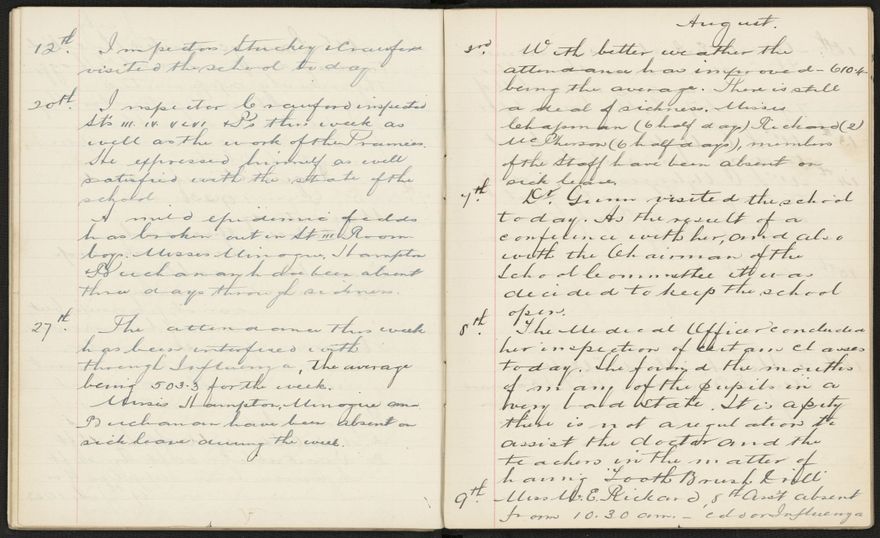 12th. Inspectors Stuckey & Crawford
visited the school to day
20th. Inspector Crawford inspected
Sts III. IV. V & VI. & P's this week as
well as the work of the Trainees.
He expressed himself as well
satisfied with the state of the
school
A mild epidemic of colds
has broken out in St III Room
boys. Misses Minogue, Hampton
& Buchanan have been absent
three days through sickness.
27th. The attendance this week
has been interfered with
through Influenza, the average
being 503.3 for the week.
Misses Hampton, Minogue and
Buchanan have been absent on
sick leave during the week.
August.
3rd. With better weather the
attendance has improved - 610.4
being the average. There is still
a deal of sickness. Misses
Chapman (6 half days) Rickard (2)
McPherson (6 half days), members
of the Staff have been absent on
sick leave.
7th. Dr. Gunn visited the school
today. As the result of a
conference with her, and also
with the Chairman of the
School Committee it was
decided to keep the school
open.
8th. The Medical Officer concluded
her inspection of certain classes
today. She found the mouths
of many of the pupils in a
very bad state. It is a pity
there is not a regulation to
assist the doctor and the
teachers in the matter of
having Tooth Brush Drill
9th. Miss W. E. Rickard 8th Asst absent
from 10.30 am. - Influenza